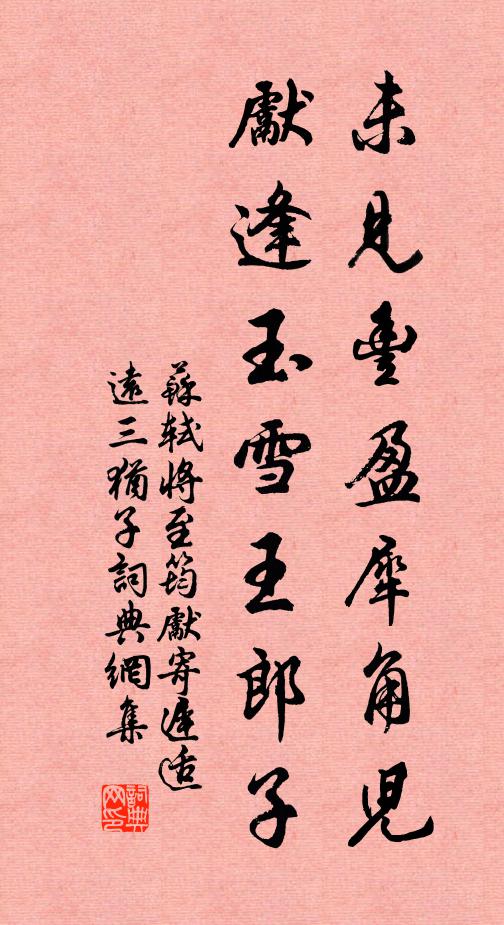 未見豐盈犀角兒
獻逢玉雪王郎子
蘇軾將至筠獻寄遲适
遠三猶子詞典網集
詞典
网印